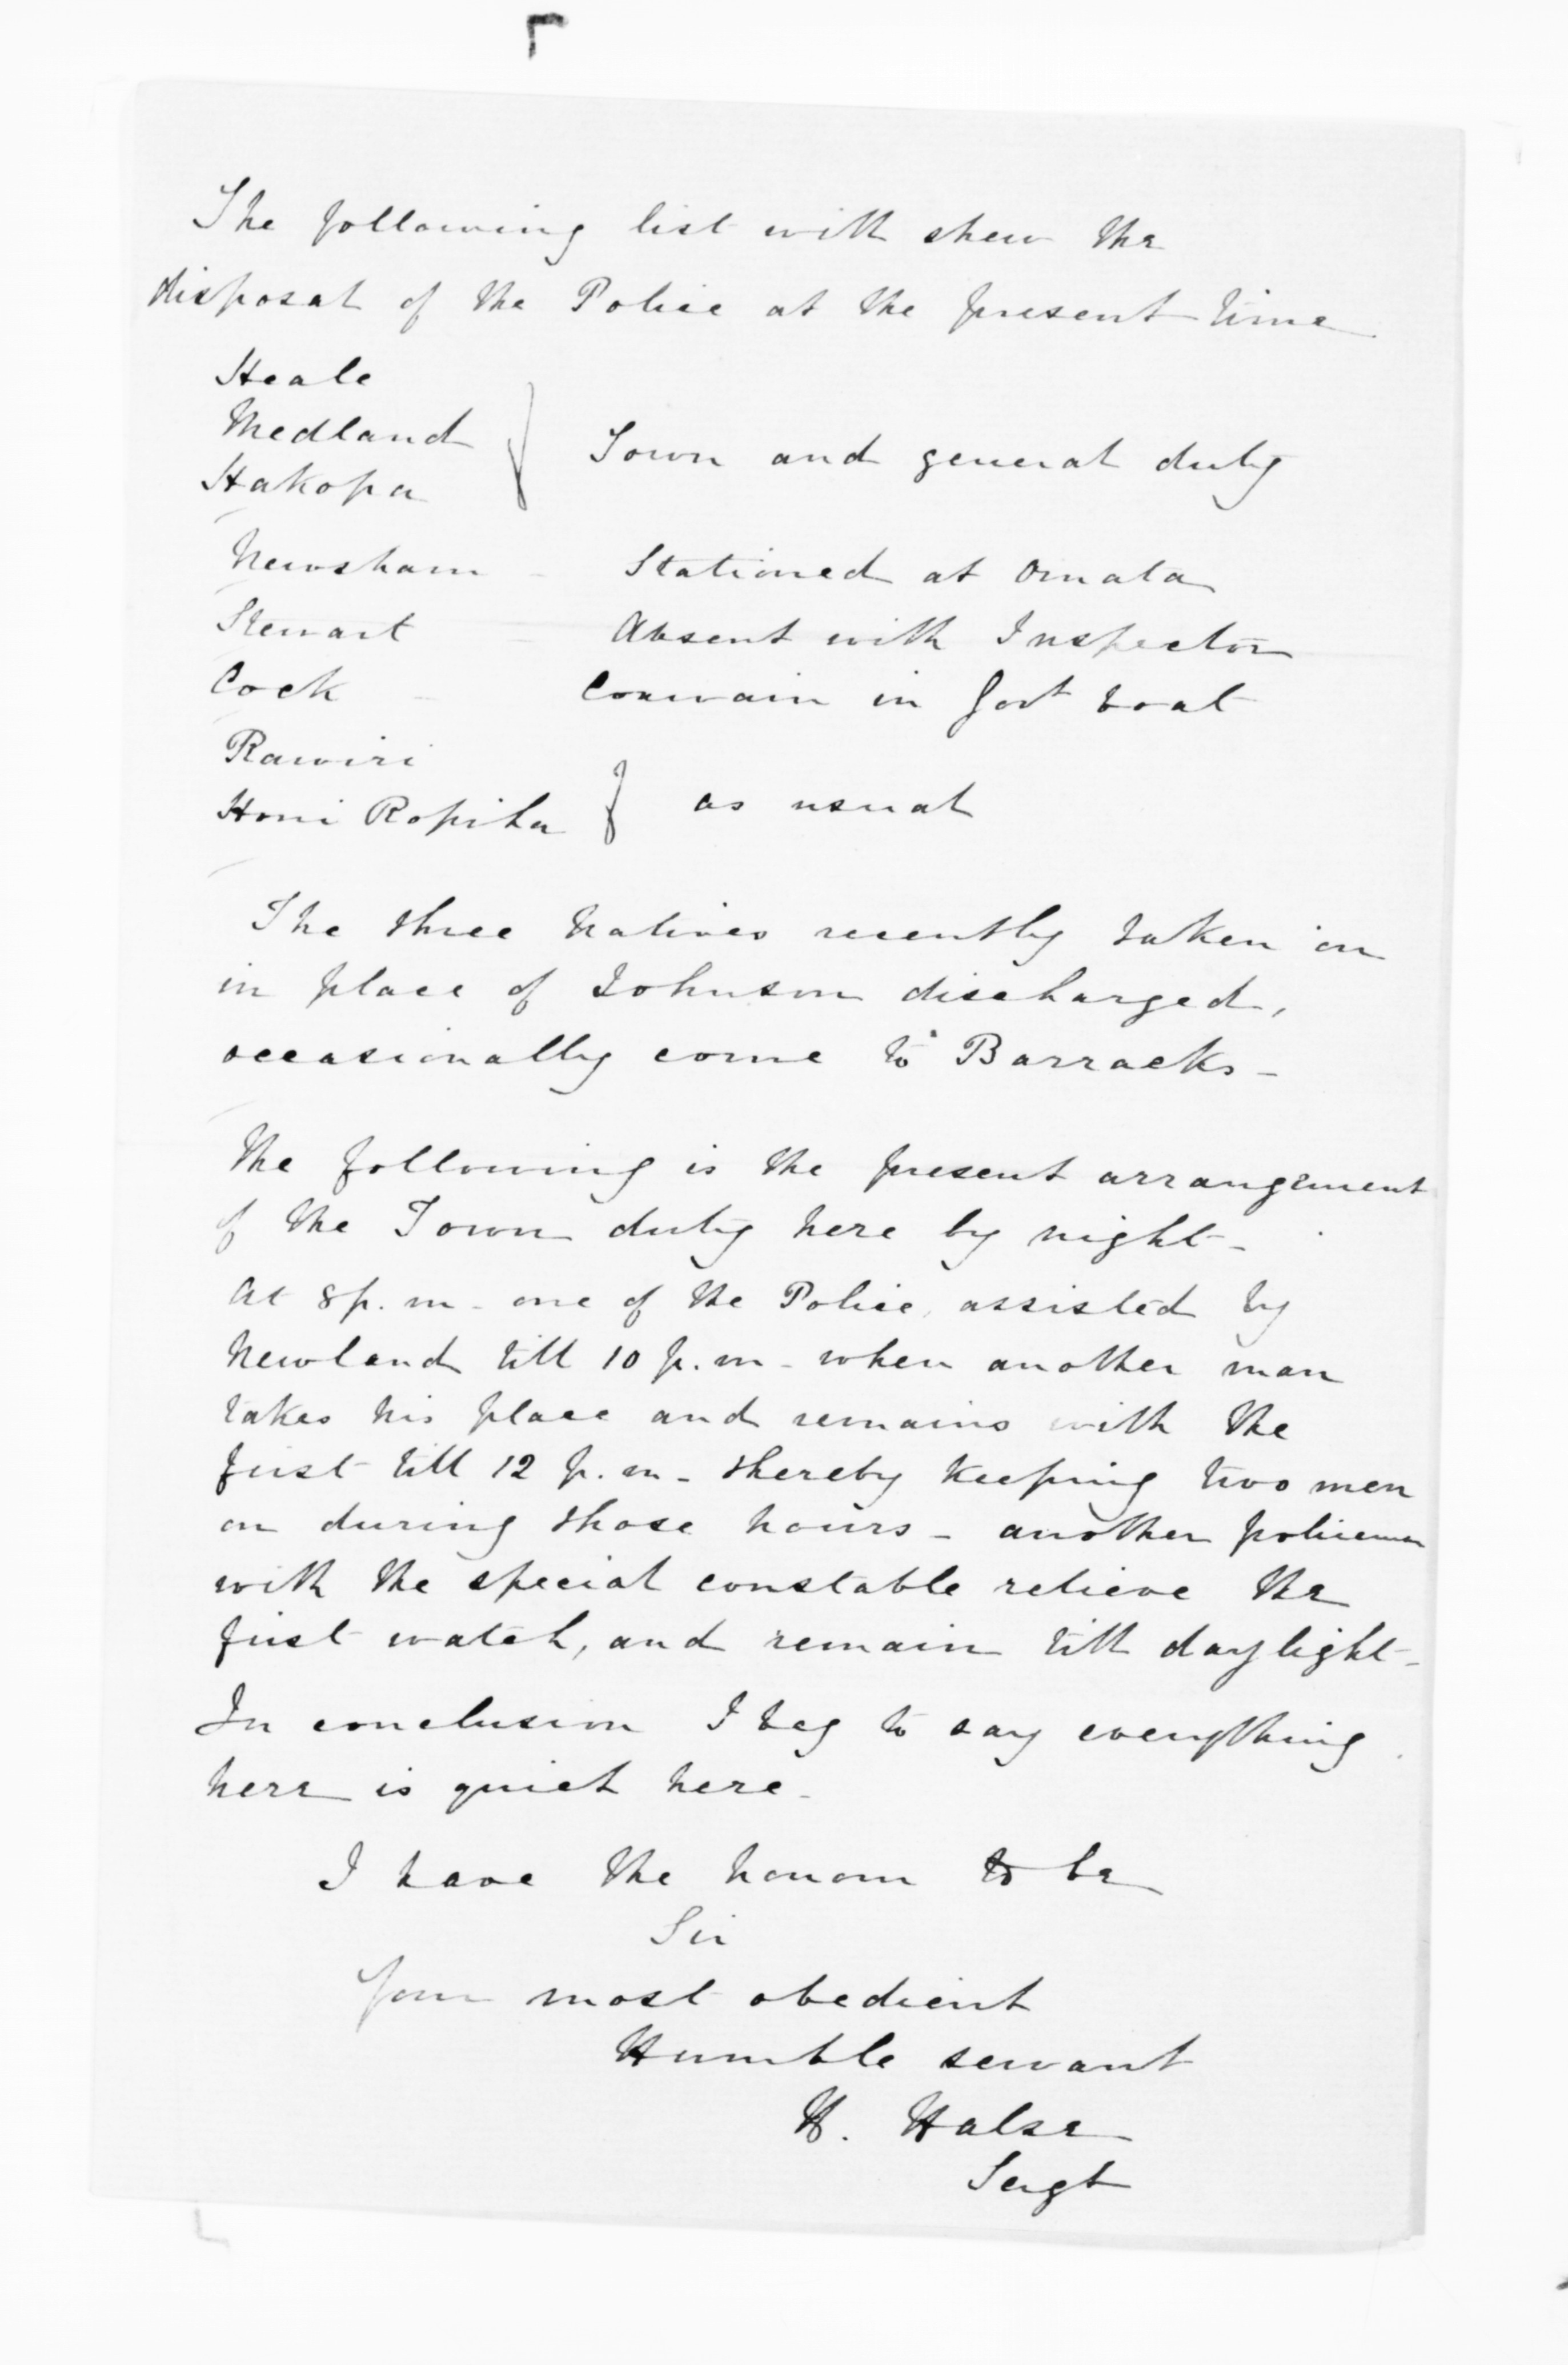 The following list will shew the
disposal of the Police at the present time
Heale
Medland
Hakopa
} Town and general duty
Newsham - Stationed at Omata
Stewart - Absent with Inspector
Cock - Coxwain in Govt boat
Rawiri
Honi Ropiha
} as usual
The three Natives recently taken on
in place of Johnson discharged,
occasionally come to Barracks -
The following is the present arrangement
of the Town duty here by night -
At 8 p.m. one of the Police, assisted by
Newland till 10 p.m - when another man
takes his place and remains with the
first till 12 p.m - thereby keeping two men
on during those hours - another policeman
with the special constable relieve the
first watch, and remain till daylight -
In conclusion I beg to say everything
here is quiet here -
I have the honour to be
Sir
Your most obedient
Humble servant
H. Halse
Sergt